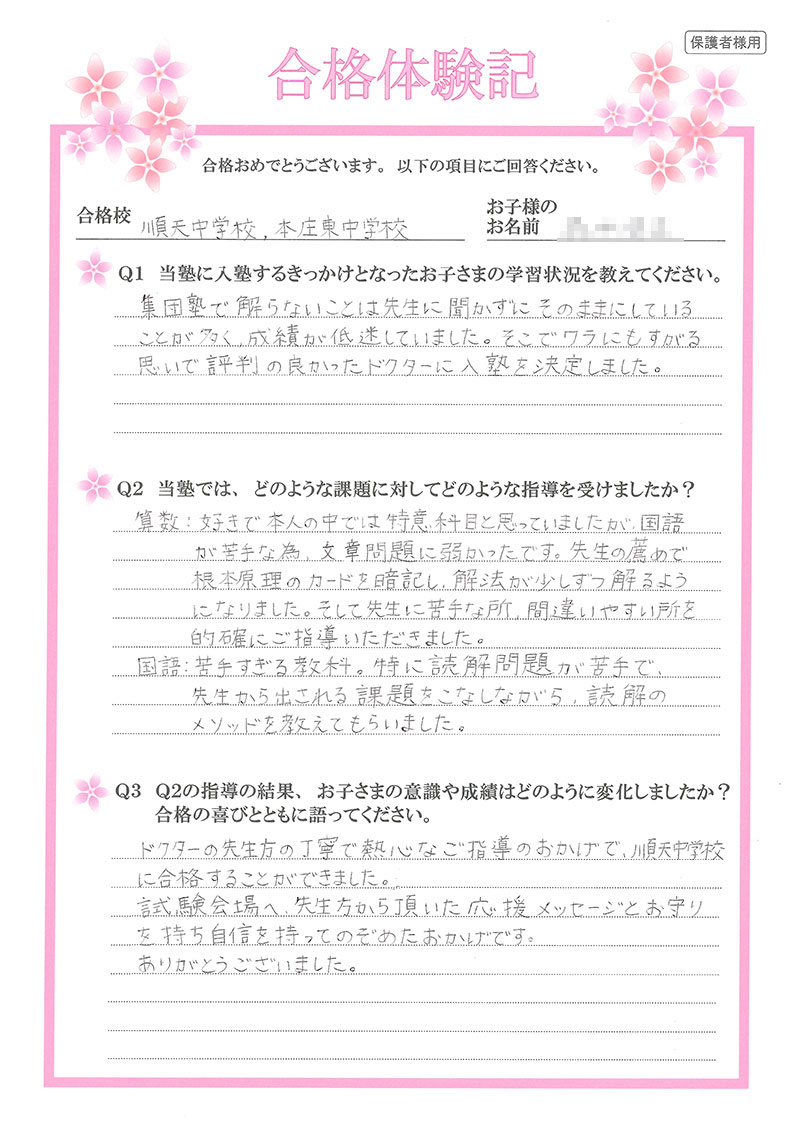 保護者様用
合格体験記
合格おめでとうございます。以下の項目にご回答ください。
合格校 順天中学校, 本庄東中学校
お子様の
お名前
Q1 当塾に入塾するきっかけとなったお子さまの学習状況を教えてください。
集団塾で解らないことは先生に聞かずにそのままにしている
ことが多く、成績が低迷していました。そこでワラにもすがる
思いで評判の良かったドクターに入塾を決定しました。
Q2 当塾では、どのような課題に対してどのような指導を受けましたか？
算数：好きで本人の中では特意科目と思っていましたが、国語
が苦手な為、文章問題に弱かったです。先生の薦めで
根本原理のカードを暗記し、解法が少しずつ解るよう
になりました。そして先生に苦手な所、間違いやすい所を
的確にご指導いただきました。
国語：苦手すぎる教科。特に読解問題が苦手で、
先生から出される課題をこなしながら、読解の
メソッドを教えてもらいました。
Q3 Q2の指導の結果、お子さまの意識や成績はどのように変化しましたか？
合格の喜びとともに語ってください。
ドクターの先生方の丁寧で熱心なご指導のおかげで、順天中学校
に合格することができました。
試験会場へ、先生方から頂いた応援メッセージとお守り
を持ち自信を持ってのぞめたおかげです。
ありがとうございました。